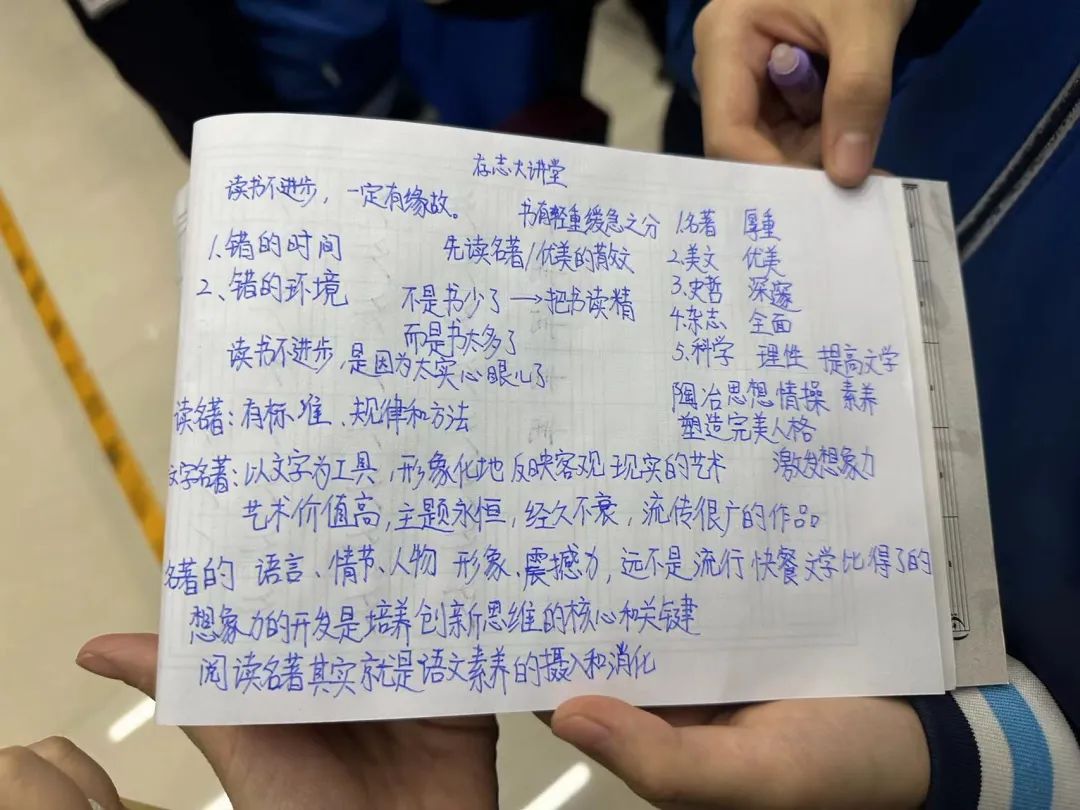 存志大讲堂
读书不进步，一定有缘故。
1.错的时间
2、错的环境
书有轻重缓急之分
先读名著/优美的散文
不是书少了→把书读精
而是书太多了
读书不进步，是因为太实心眼儿了
1.名著 厚重
2.美文 优美
3.史哲 深邃
4.杂志 全面
5.科学 理性 提高文学
陶冶思想情操 素养
塑造完美人格
激发想象力
读名著：有标准、规律和方法
文字名著：以文字为工具，形象化地反映客观现实的艺术
艺术价值高，主题永恒，经久不衰，流传很广的作品。
名著的 语言、情节、人物 形象、震撼力，远不是流行快餐文学比得了的
想象力的开发是培养创新思维的核心和关键
阅读名著其实就是语文素养的摄入和消化